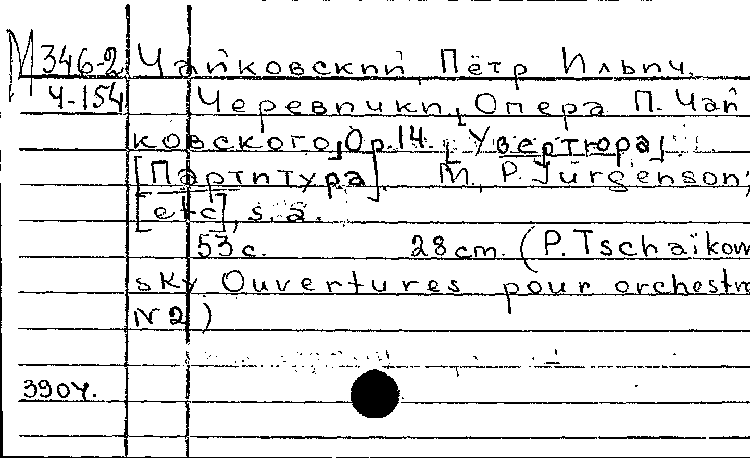 М346-2 Чайковский, Пётр Ильич.
Ч-154 Черевички, Опера П. Чай
ковского, Op. 14. [Увертюра]
[Партитура]. М., P. Jurgenson;
[etc], s. a.
53 с. 28 cm. (P. Tschaïkow
sky Ouvertures pour orchestre
N 2)
390ч.